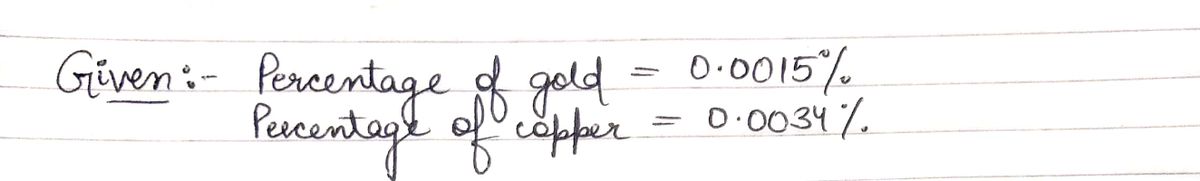 Given :- Percentage of gold = 0.0015%
Percentage of copper = 0.0034%.